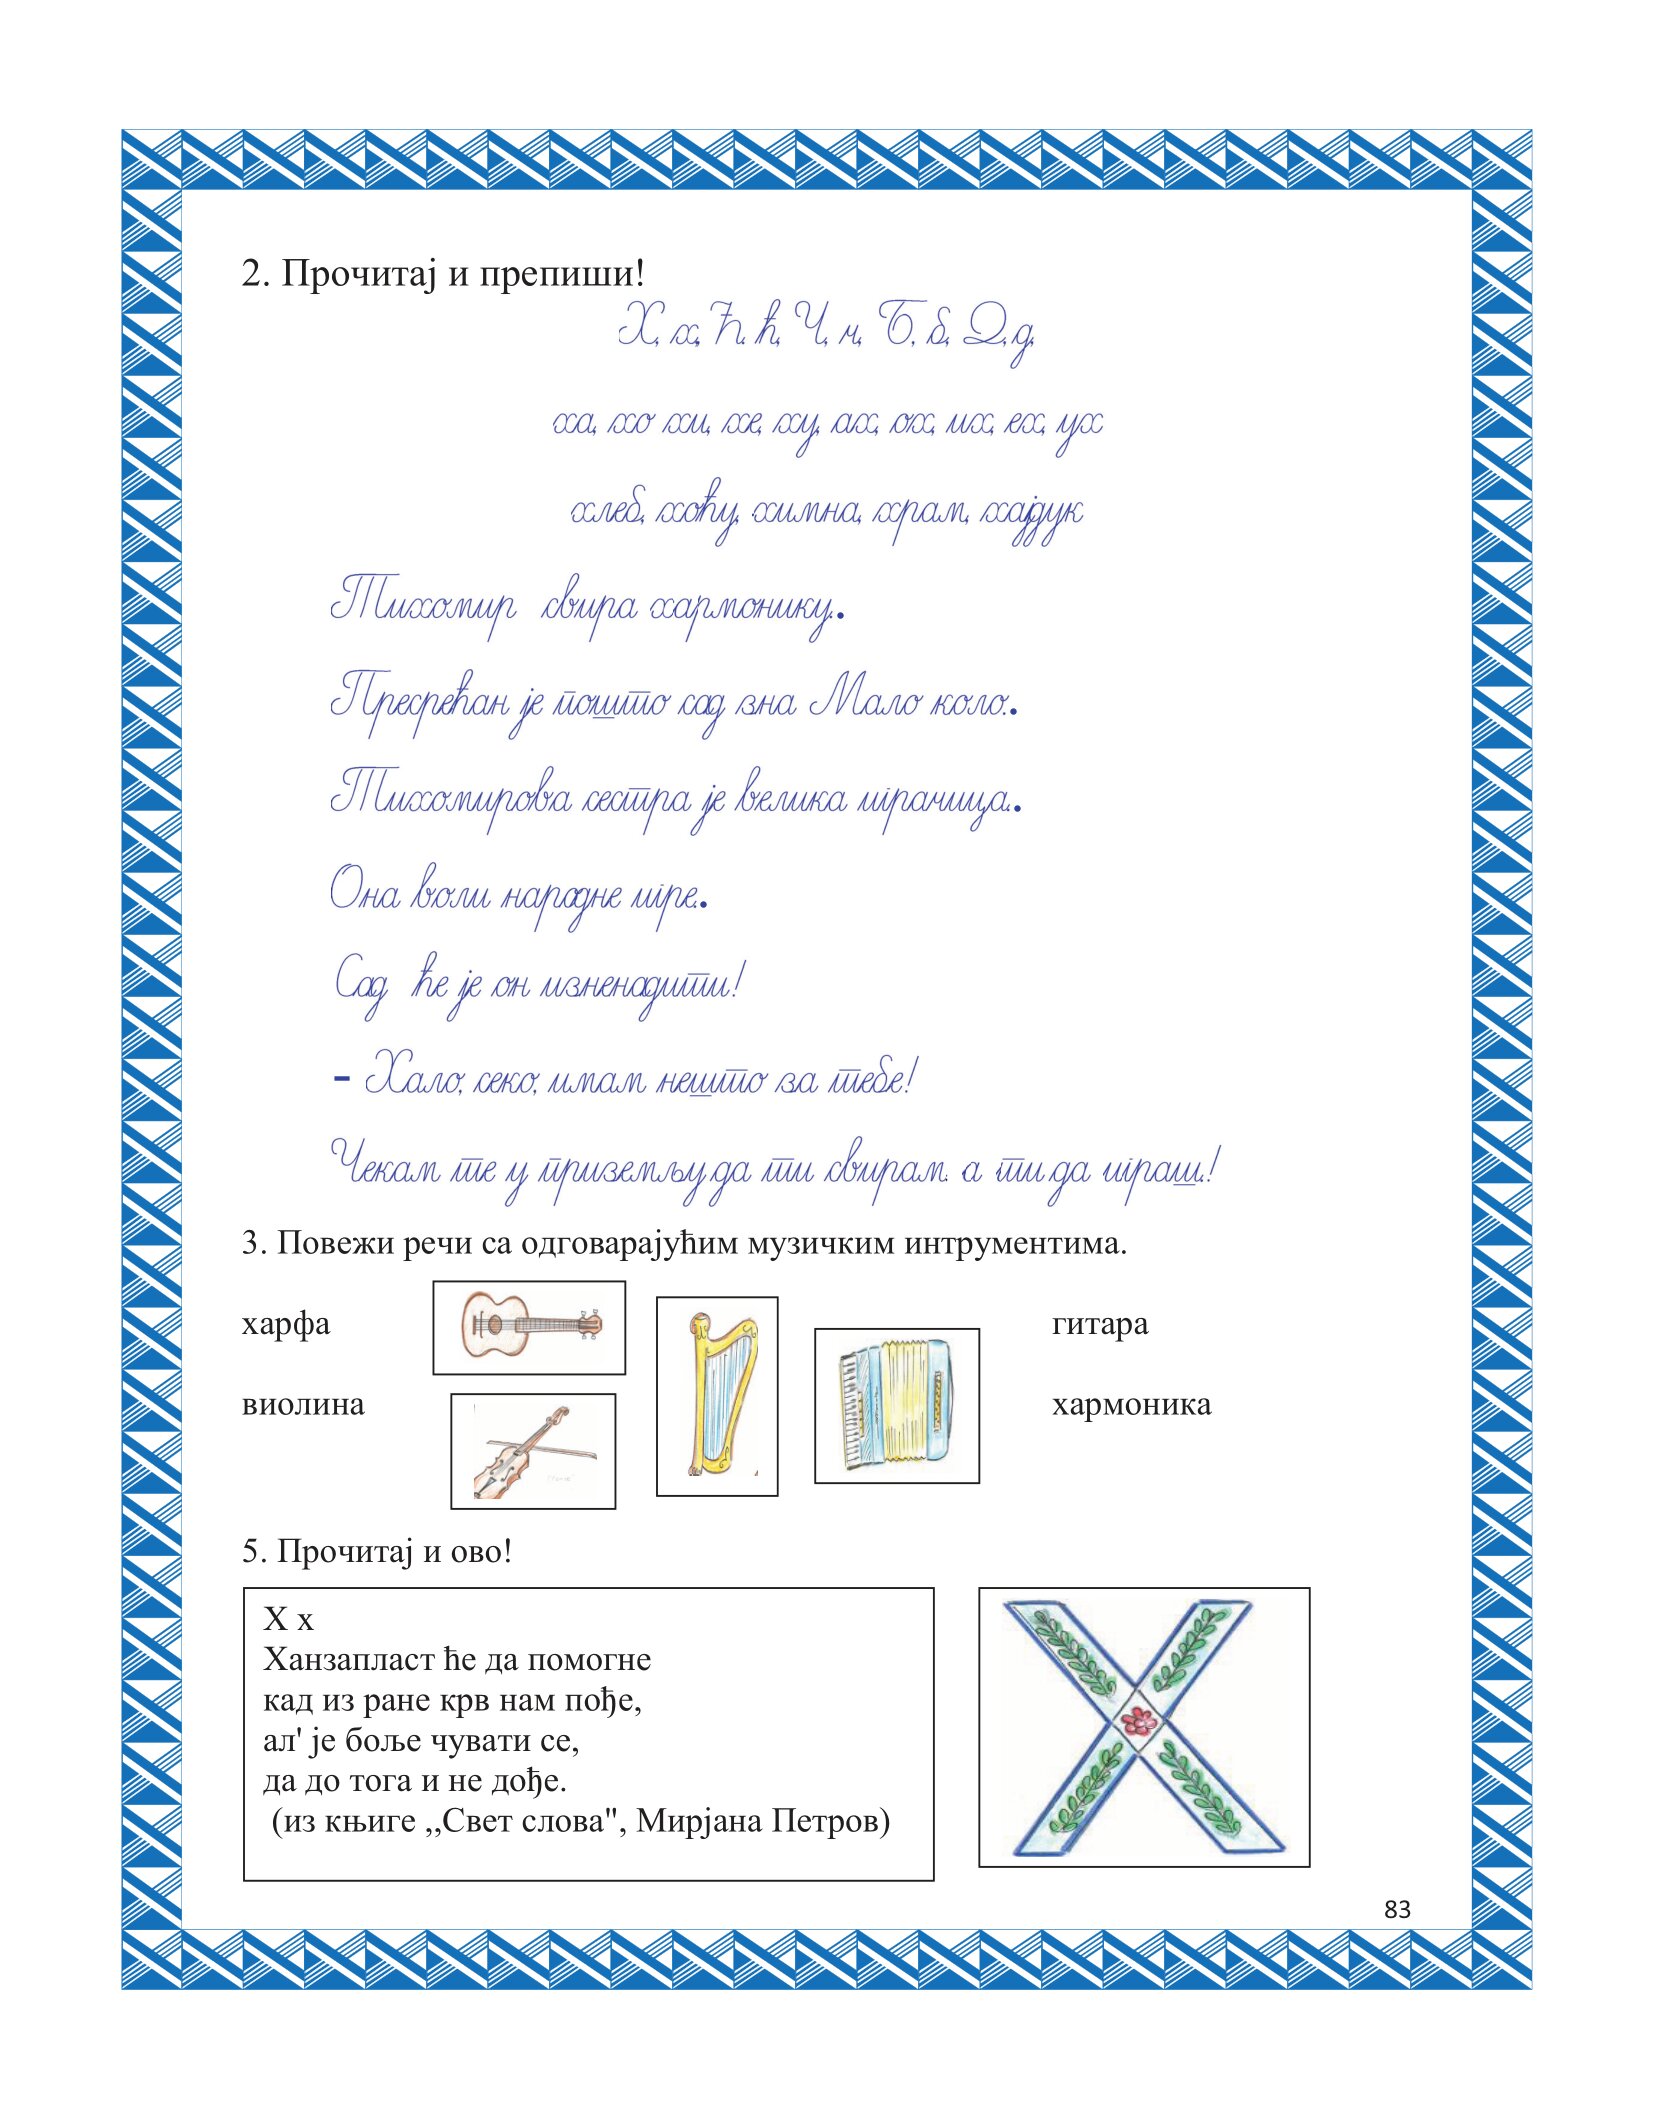 2. Прочитај и препиши!
Х, х, Ћ, ћ, Ч, ч, Б, б, Д, д,
ха, хо хи, хе, ху, ах, ох, их, ех, ух
хлеб, хоћу, химна, храм, хајдук
Тихомир свира хармонику.
Пресрећан је пошто сад зна Мало коло.
Тихомирова сестра је велика играчица.
Она воли народне игре.
Сад ће је он изненадити!
- Хало, секо, имам нешто за тебе!
Чекам те у приземљу да ти свирам. а ти да играш!
3. Повежи речи са одговарајућим музичким интрументима.
харфа гитара
виолина хармоника
5. Прочитај и ово!
Х х
Ханзапласт ће да помогне
кад из ране крв нам пође,
ал' је боље чувати се,
да до тога и не дође.
(из књиге ,,Свет слова", Мирјана Петров)
83